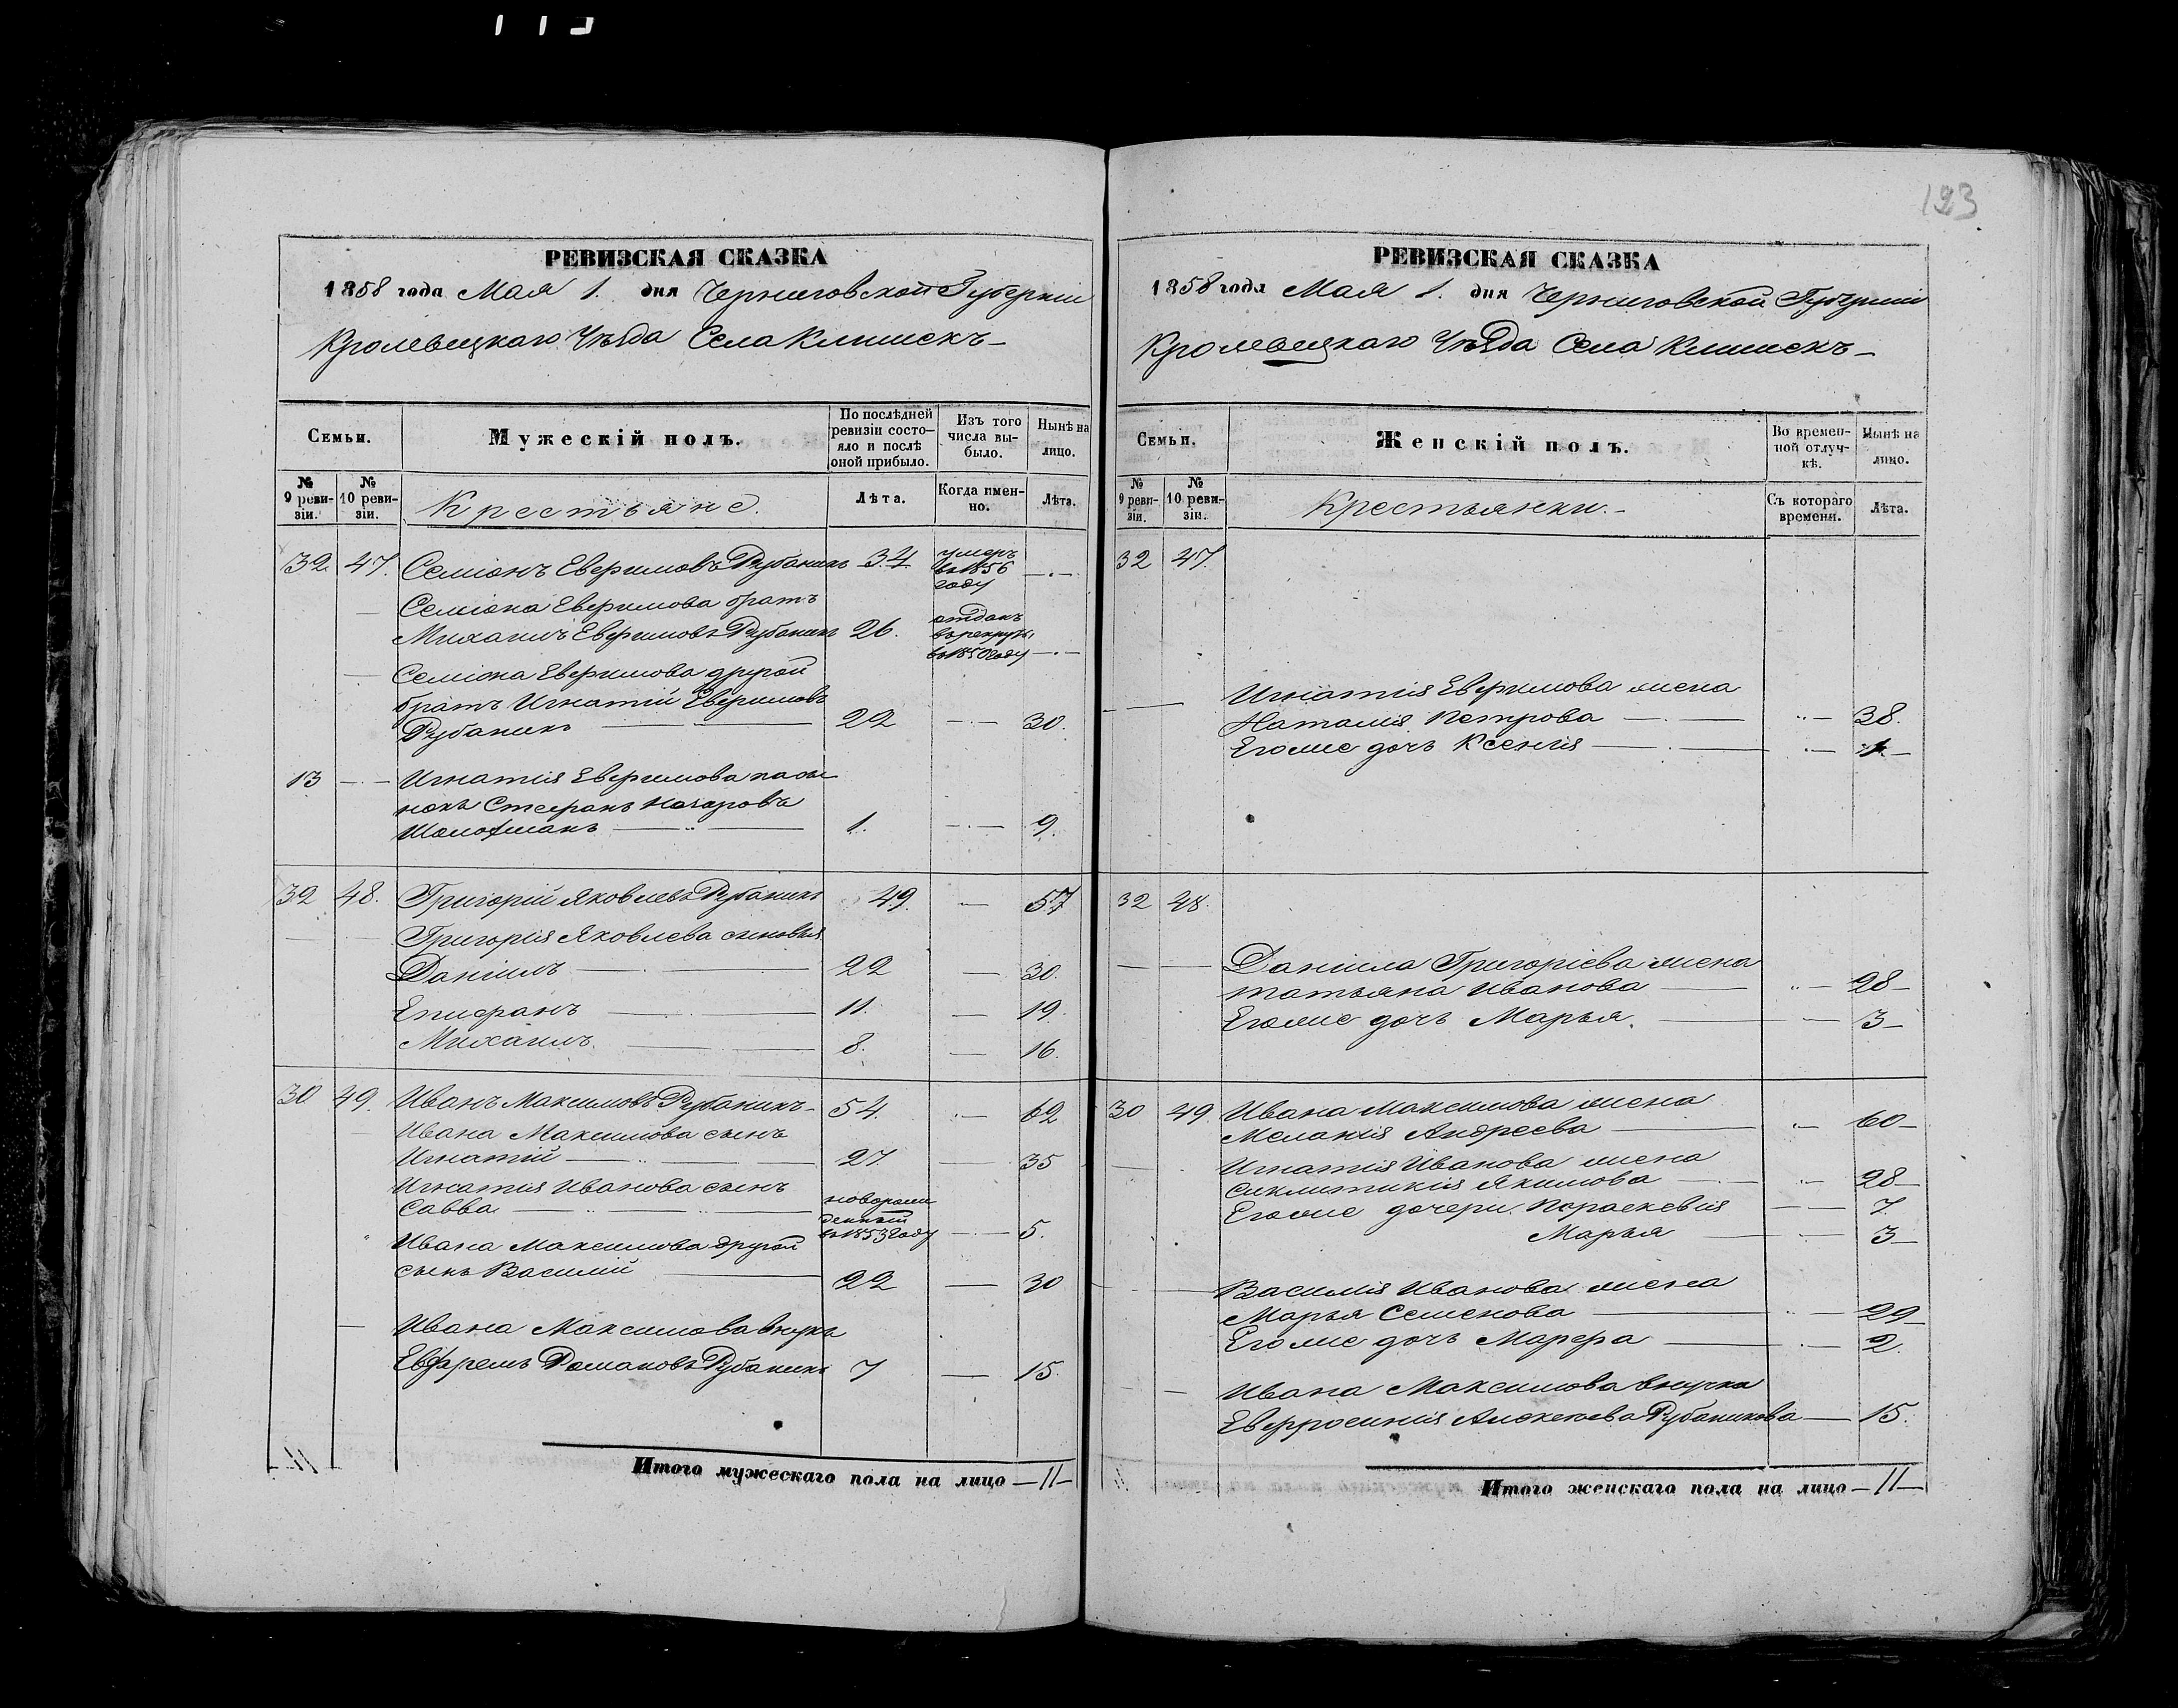 123
РЕВИЗСКАЯ СКАЗКА
1858 года Мая 1. дня Черниговской Губерніи
Кролевецкаго Уѣзда Села Клишекъ
Семьи.
Мужескій полъ.
По послѣдней ревизіи состо-
яло и послѣ
оной прибыло.
Изъ того
числа вы-
было.
Нынѣ на
лицо.
№ 9 реви-
зіи.
№ 10 реви-
зіи.
Крестьяне.
Лѣта.
Когда имен-
но.
Лѣта.
32 47. Семіонъ Евфимовъ Рубаникъ 34 умеръ въ 1856 году
Семіона Евфимова братъ
Михаилъ Евфимовъ Рубаникъ 26. отданъ в рекруты в 1850 году
Семіона Евфимова другой
братъ Игнатій Евфимовъ
Рубаникъ 22 30.
13 Игнатія Евфимова пасы
нокъ Стефанъ Назаровъ
1. 9.
32 48. Григорій Яковлевъ Рубаникъ 49. 57
Григорія Яковлева сыновья
Даніилъ 22 30.
Епифанъ 11. 19.
Михаилъ 8. 16.
30 49. Иванъ Максимовъ Рубаникъ 54. 62
Ивана Максимова сынъ
Игнатій 27 35
Игнатія Иванова сынъ
Савва новорож денный въ 1853 году 5.
Ивана Максимова другой
сынъ Василій 22 30
Ивана Максимова внукъ
Ефремъ Романовъ Рубаникъ 7 15.
Итого мужескаго пола на лицо 11
РЕВИЗСКАЯ СКАЗКА
1858 года Мая 1. дня Черниговской Губерніи
Кролевецкаго Уѣзда Села Клишекъ
Семьи.
Женскій полъ.
Во времен-
ной отлуч-
кѣ.
Нынѣ на
лицо.
№ 9 реви-
зіи.
№ 10 реви-
зіи.
Крестьянки.
Съ котораго
времени.
Лѣта.
32 47.
Игнатія Евфимова жена
Наталія Петрова 38.
Егоже дочь Ксенія 1.
32 48.
Даніила Григоріева жена
татьяна Иванова 28
Егоже дочь Марья. 3
30 49. Ивана Максимова жена
Меланія Андреева 60
Игнатія Иванова жена
Синклитикія Якимова 28
Егоже дочери. Параскевія 7.
Марья 3
Василія Иванова жена
Марья Семенова 29
Егоже дочь Марфа 2.
Ивана Максимова внучка
Евфросинія Рубаникова 15.
Итого женскаго пола на лицо 11